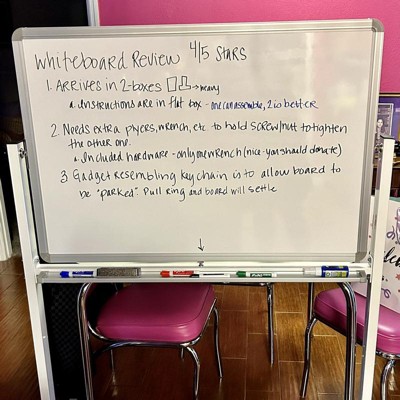 Whiteboard Review 4/5 STARS
1. Arrives in 2-boxes → heavy
a. Instructions are in flat box - one can assemble, 2 is better
2. Needs extra plyers, wrench, etc. to hold screw/nut to tighten
the other one.
a. Included hardware - only one wrench (nice - you should donate)
3. Gadget resembling key chain is to allow board to
be "parked". Pull ring and board will settle